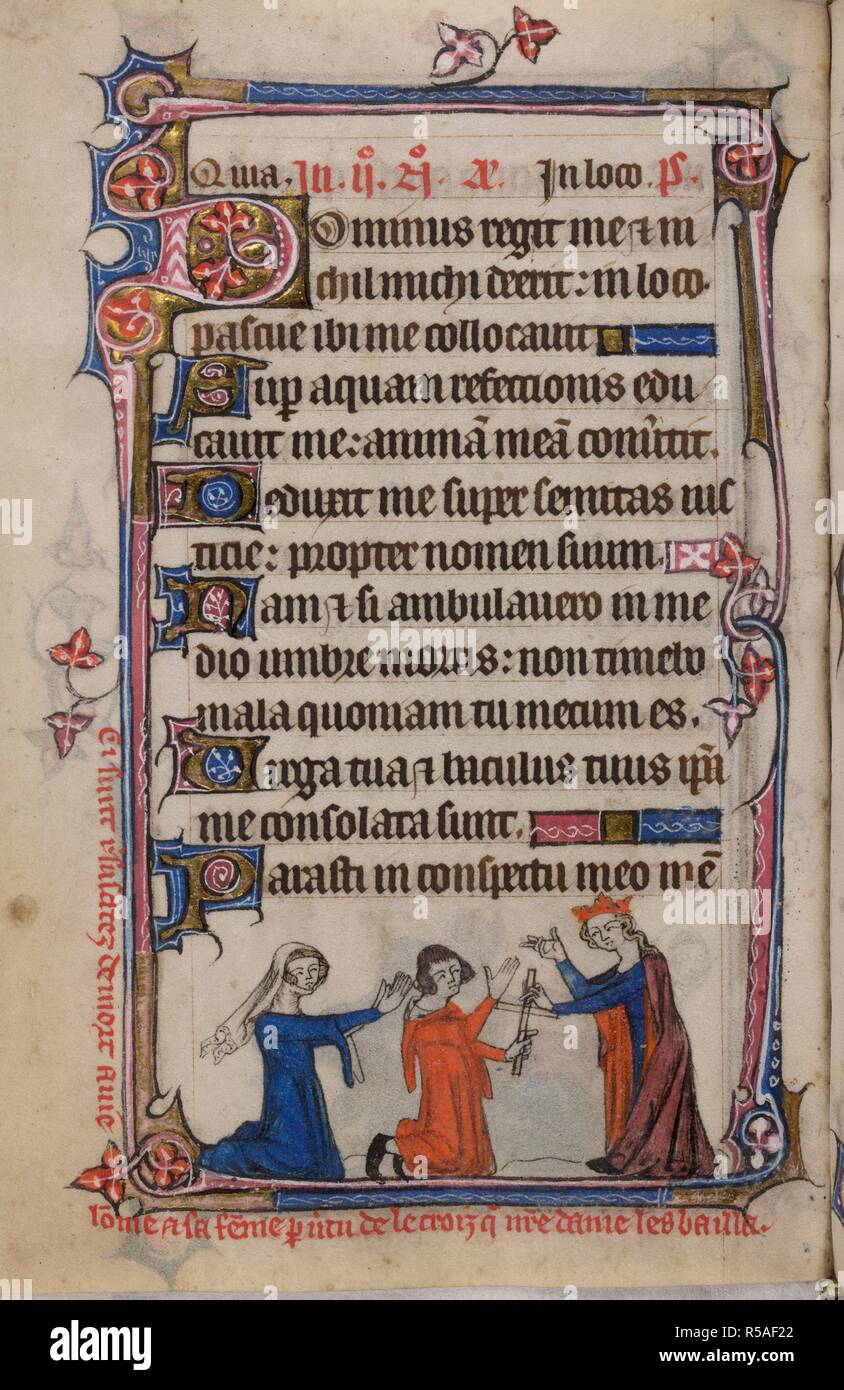 Quia. In. ij. Aͦ. Æ. In loco. ps.
Dominus regit me ⁊ ni
chil michi deerit: in loco
pascue ibi me collocauit
Sup aquam refectionis edu
cauit me: animā meā conuertit.
Deduxit me super semitas ius
ticie: propter nomen suum.
Nam ⁊ si ambulauero in me
dio umbre mortis: non timebo
mala quoniam tu mecum es.
Uirga tua ⁊ baculus tuus ip̄a
me consolata sunt.
Parasti in conspectu meo mē
Ci sunt deliurez de mort
lōme ⁊ sa fēme p uertu de le croiz q̄ nr̄e dame les bailla.
alamy
Image ID: R5AF22
www.alamy.com